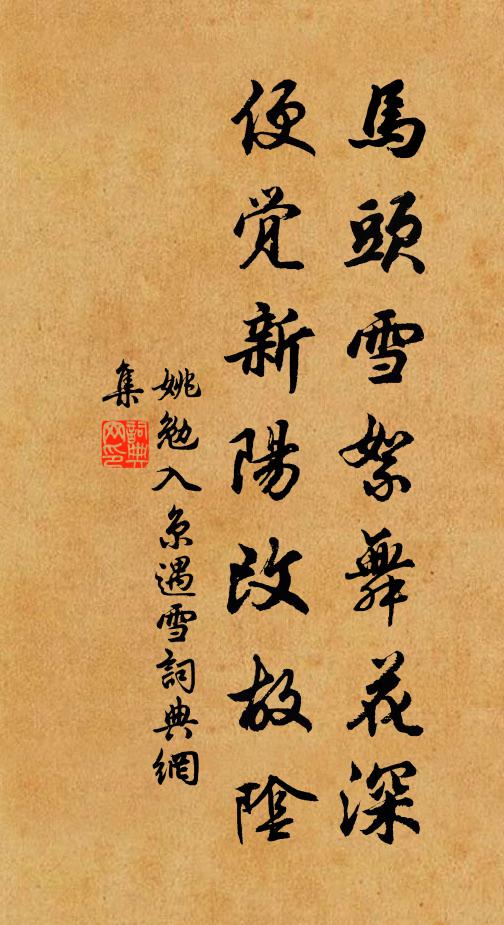 馬頭雪絮舞花深
便覚新陽改故陰
姚勉入京遇雪詞典網
集
詞典网印